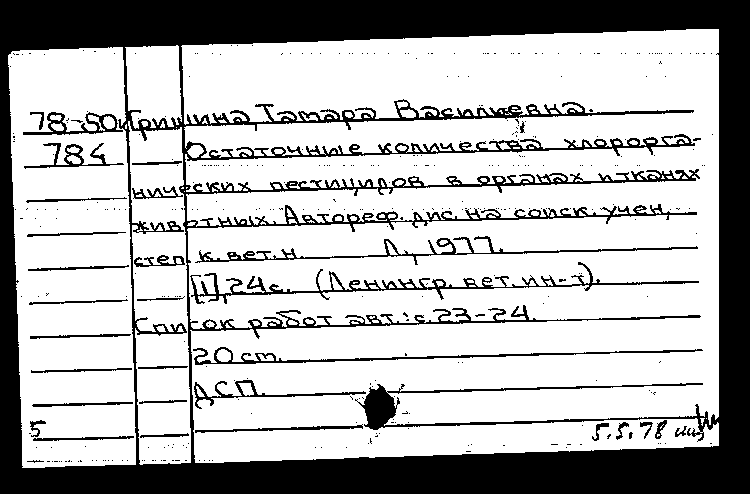 78-50 Гришина, Тамара Васильевна.
784 Остаточные количества хлорорга-
нических пестицидов в органах и тканях
животных. Автореф. дис. на соиск. учен,
степ. к. вет. н. Л., 1977.
[1], 24 с. (Ленингр. вет. ин-т).
Список работ авт.: с. 23-24.
20 см.
ДСП.
5 5.5.78